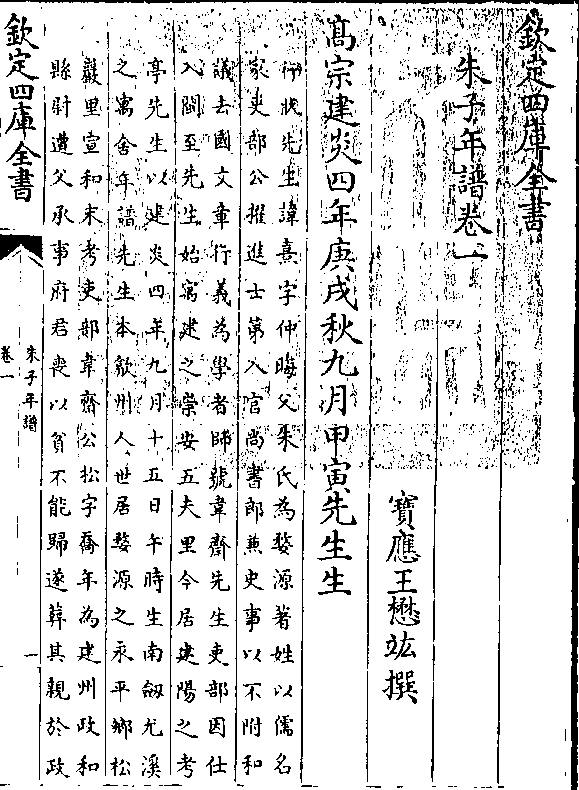 欽定四庫全書
朱子年譜卷一
寶應王懋竑撰
髙宗建炎四年庚戌秋九月甲寅先生生
行狀先生諱熹字仲晦父朱氏為婺源著姓以儒名
家吏部公擢進士第入官尚書郎兼史事以不附和
議去國文章行義為學者師號韋齋先生吏部因仕
入閩至先生始寓建之崇安五夫里今居建陽之考
亭先生以建炎四年九月十五日午時生南劍尤溪
之寓舍年譜先生本歙州人世居婺源之永平鄉松
巖里宣和末考吏部韋齋公松字喬年為建州政和
縣尉遭父承事府君喪以貧不能歸遂葬其親於政
欽定四庫全書
朱子年譜
卷一
一